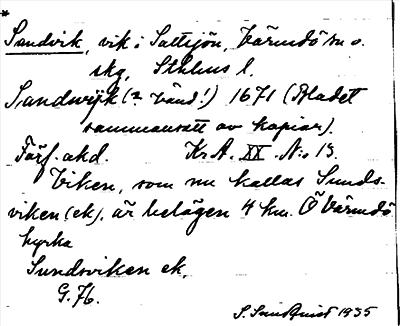 *
Sandvik, vik i Saltsjön, Värmdö sn o.
skg, Sthlms l.
Sandwijk (2 vänd!) 1671 (Bladet
sammansatt av kopior).
Förf. okd. Kr. A. XX. N:o 13.
Viken, som nu kallas Sunds-
viken (ek), är belägen 4 km. Ö Värmdö
kyrka
Sundsviken ek.
G. 76.
S. Sundquist 1935